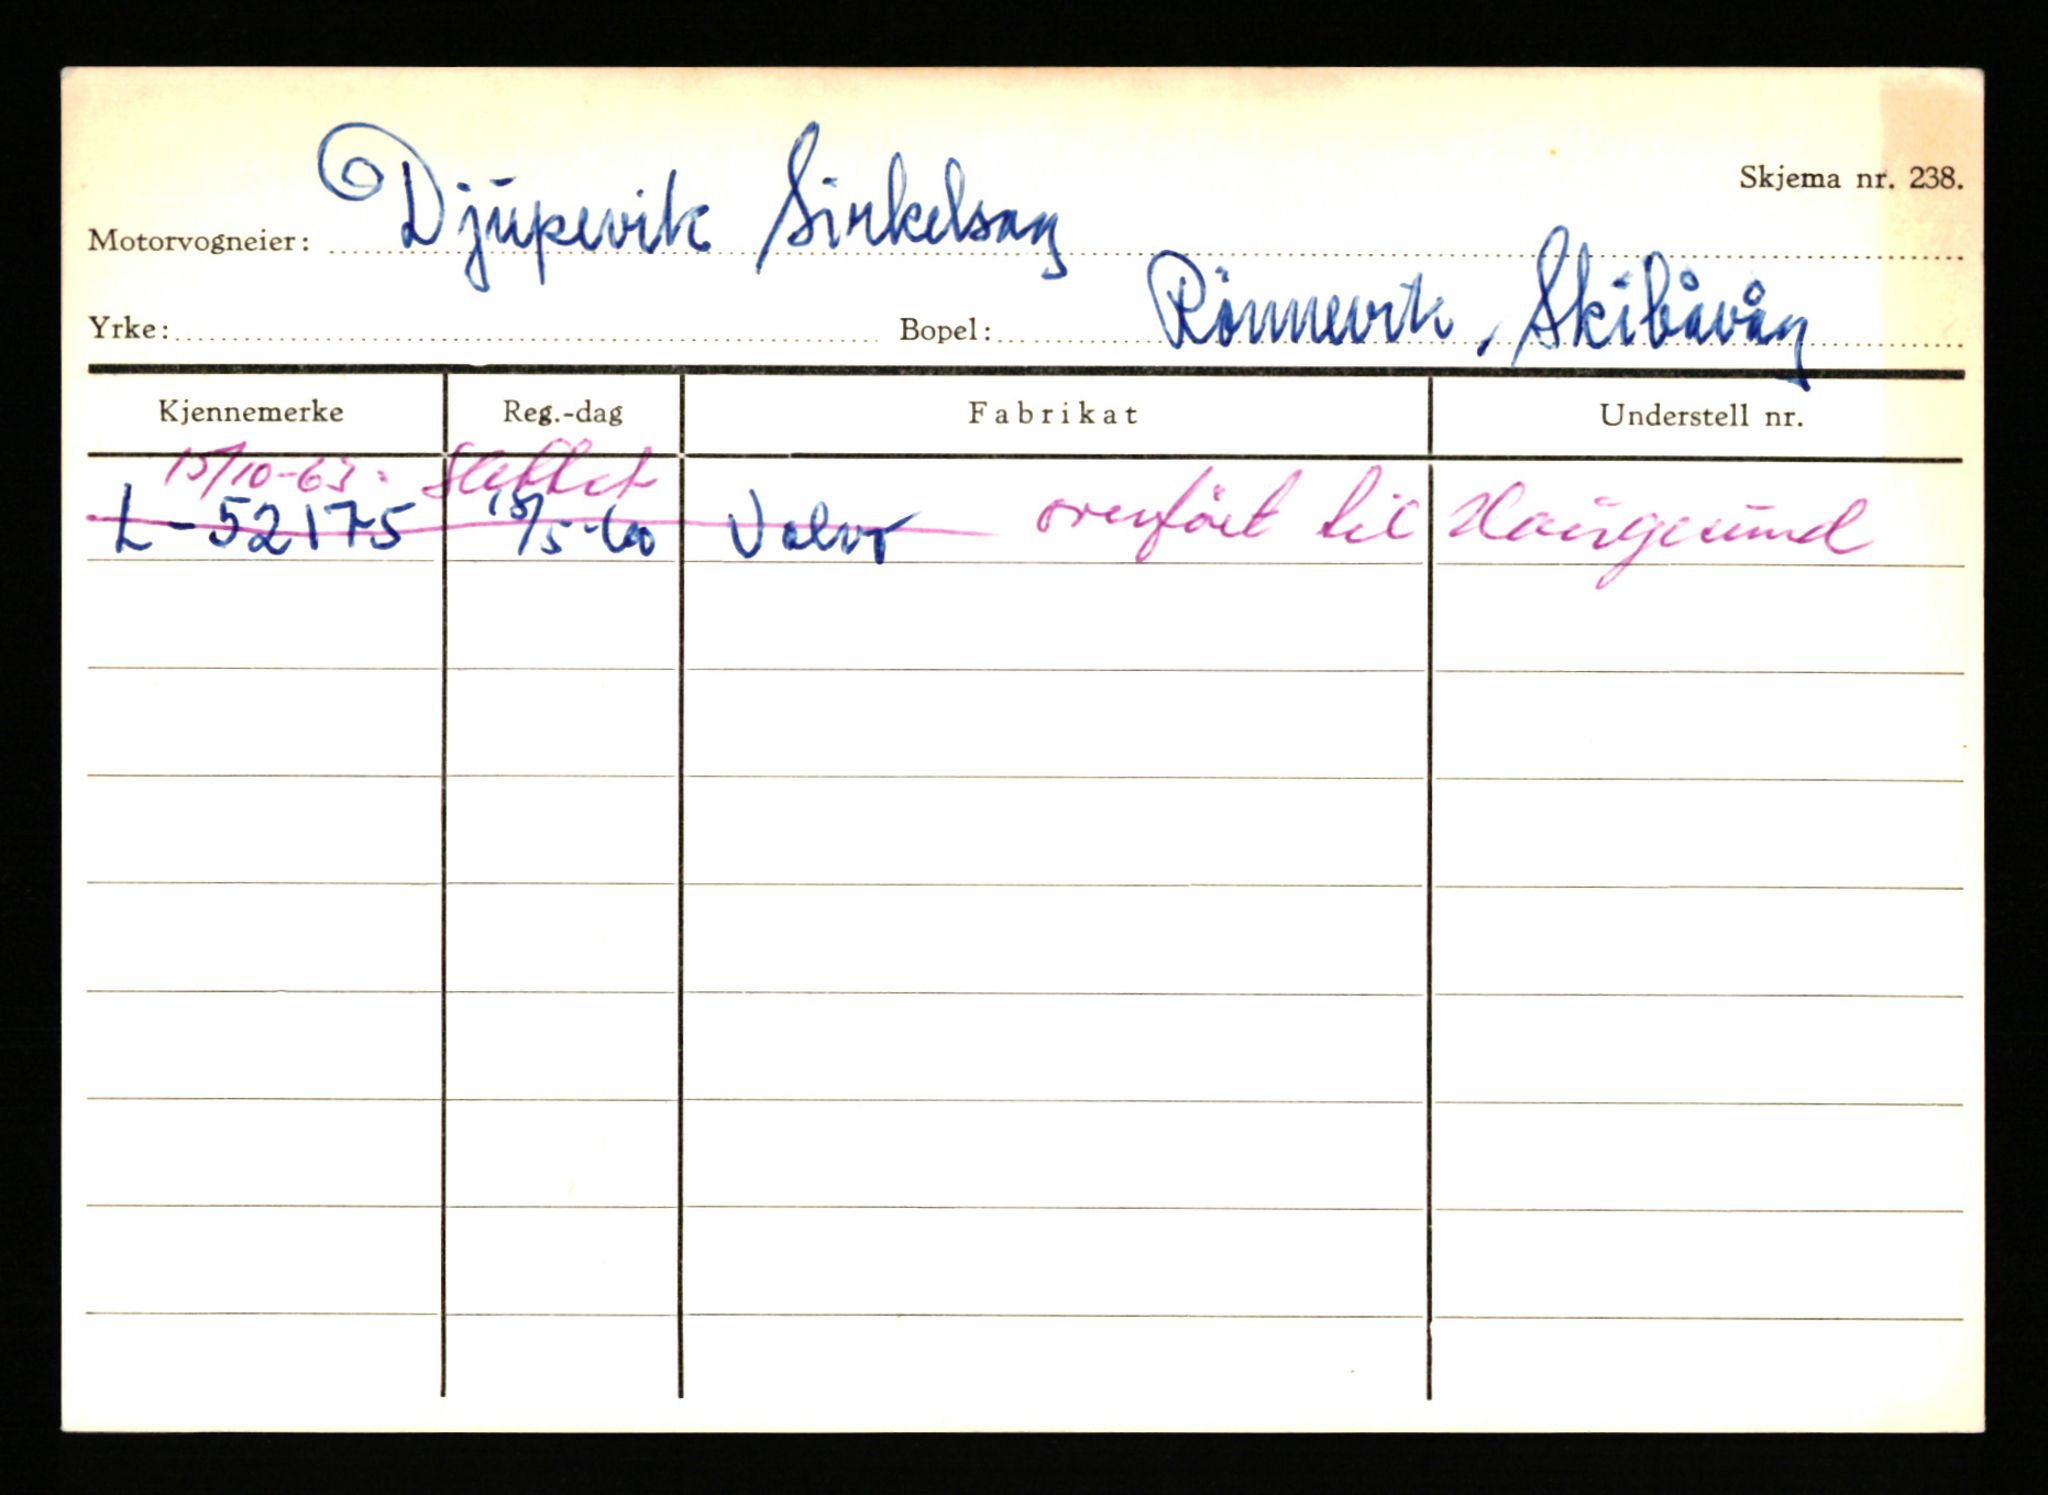 Skjema nr. 238.
Motorvogneier: Djupevik Sirkelsag
Yrke: Bopel: Rönnevik, Skibåvåg
Kjennemerke Reg.-dag Fabrikat Understell nr.
15/10-63: Slettet
L-52175 18/5-60 Volvo overfört til Haugesund